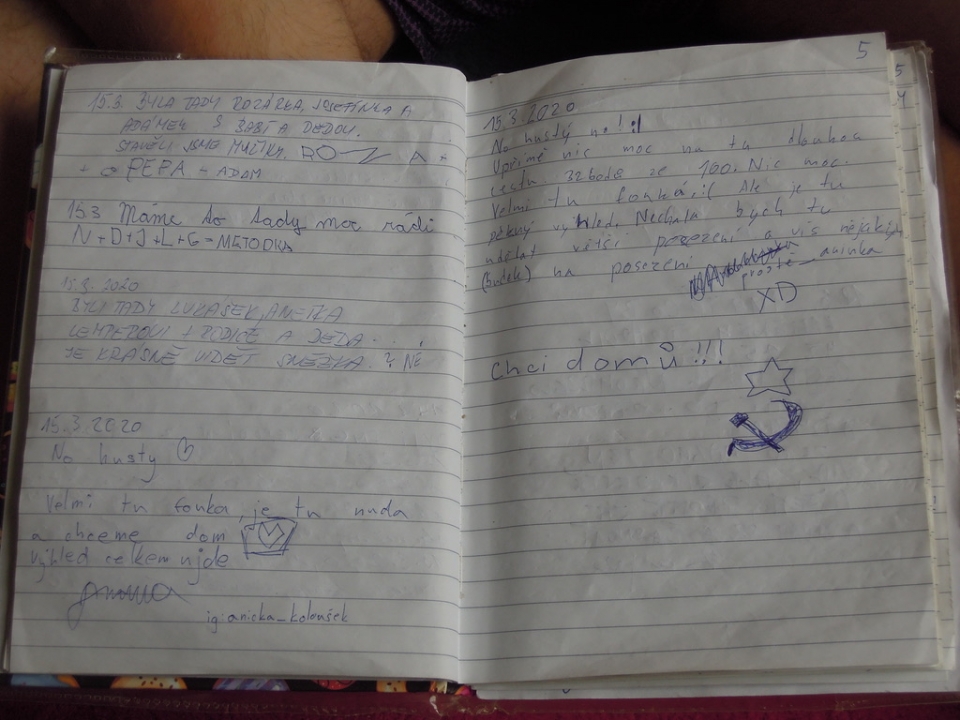 15.3. BYLA TADY ROZÁRKA, JOSEFÍNKA A
ADÁMEK S BABI A DEDOU.
STAVĚLI JSME
PEPA - ADAM
15.3 Máme to tady moc rádi
N+D+J+L+G = METODKA
15.3.2020
BYLI TADY LUKÁŠEK, ANEŽKA
LEMPEROVI + RODIČE A DĚDA...
JE KRÁSNĚ VIDĚT SNĚŽKA. ? NE
15.3.2020
No husty
Velmi tu fouka, je tu nuda
a chceme dom
výhled celkem ujde
ig: anicka_koloušek
5
15.3.2020
No hustý no!
Upřímě nic moc na tu dlouhou
cestu 32bodů ze 100. Nic moc.
Velmi tu fouká,:( Ale je tu
pěkný výhled. Nechala bych tu
udělat větší posezení a víš nějakých
(budek) na posezení
prostě _ aninka
XD
Chci domů!!!